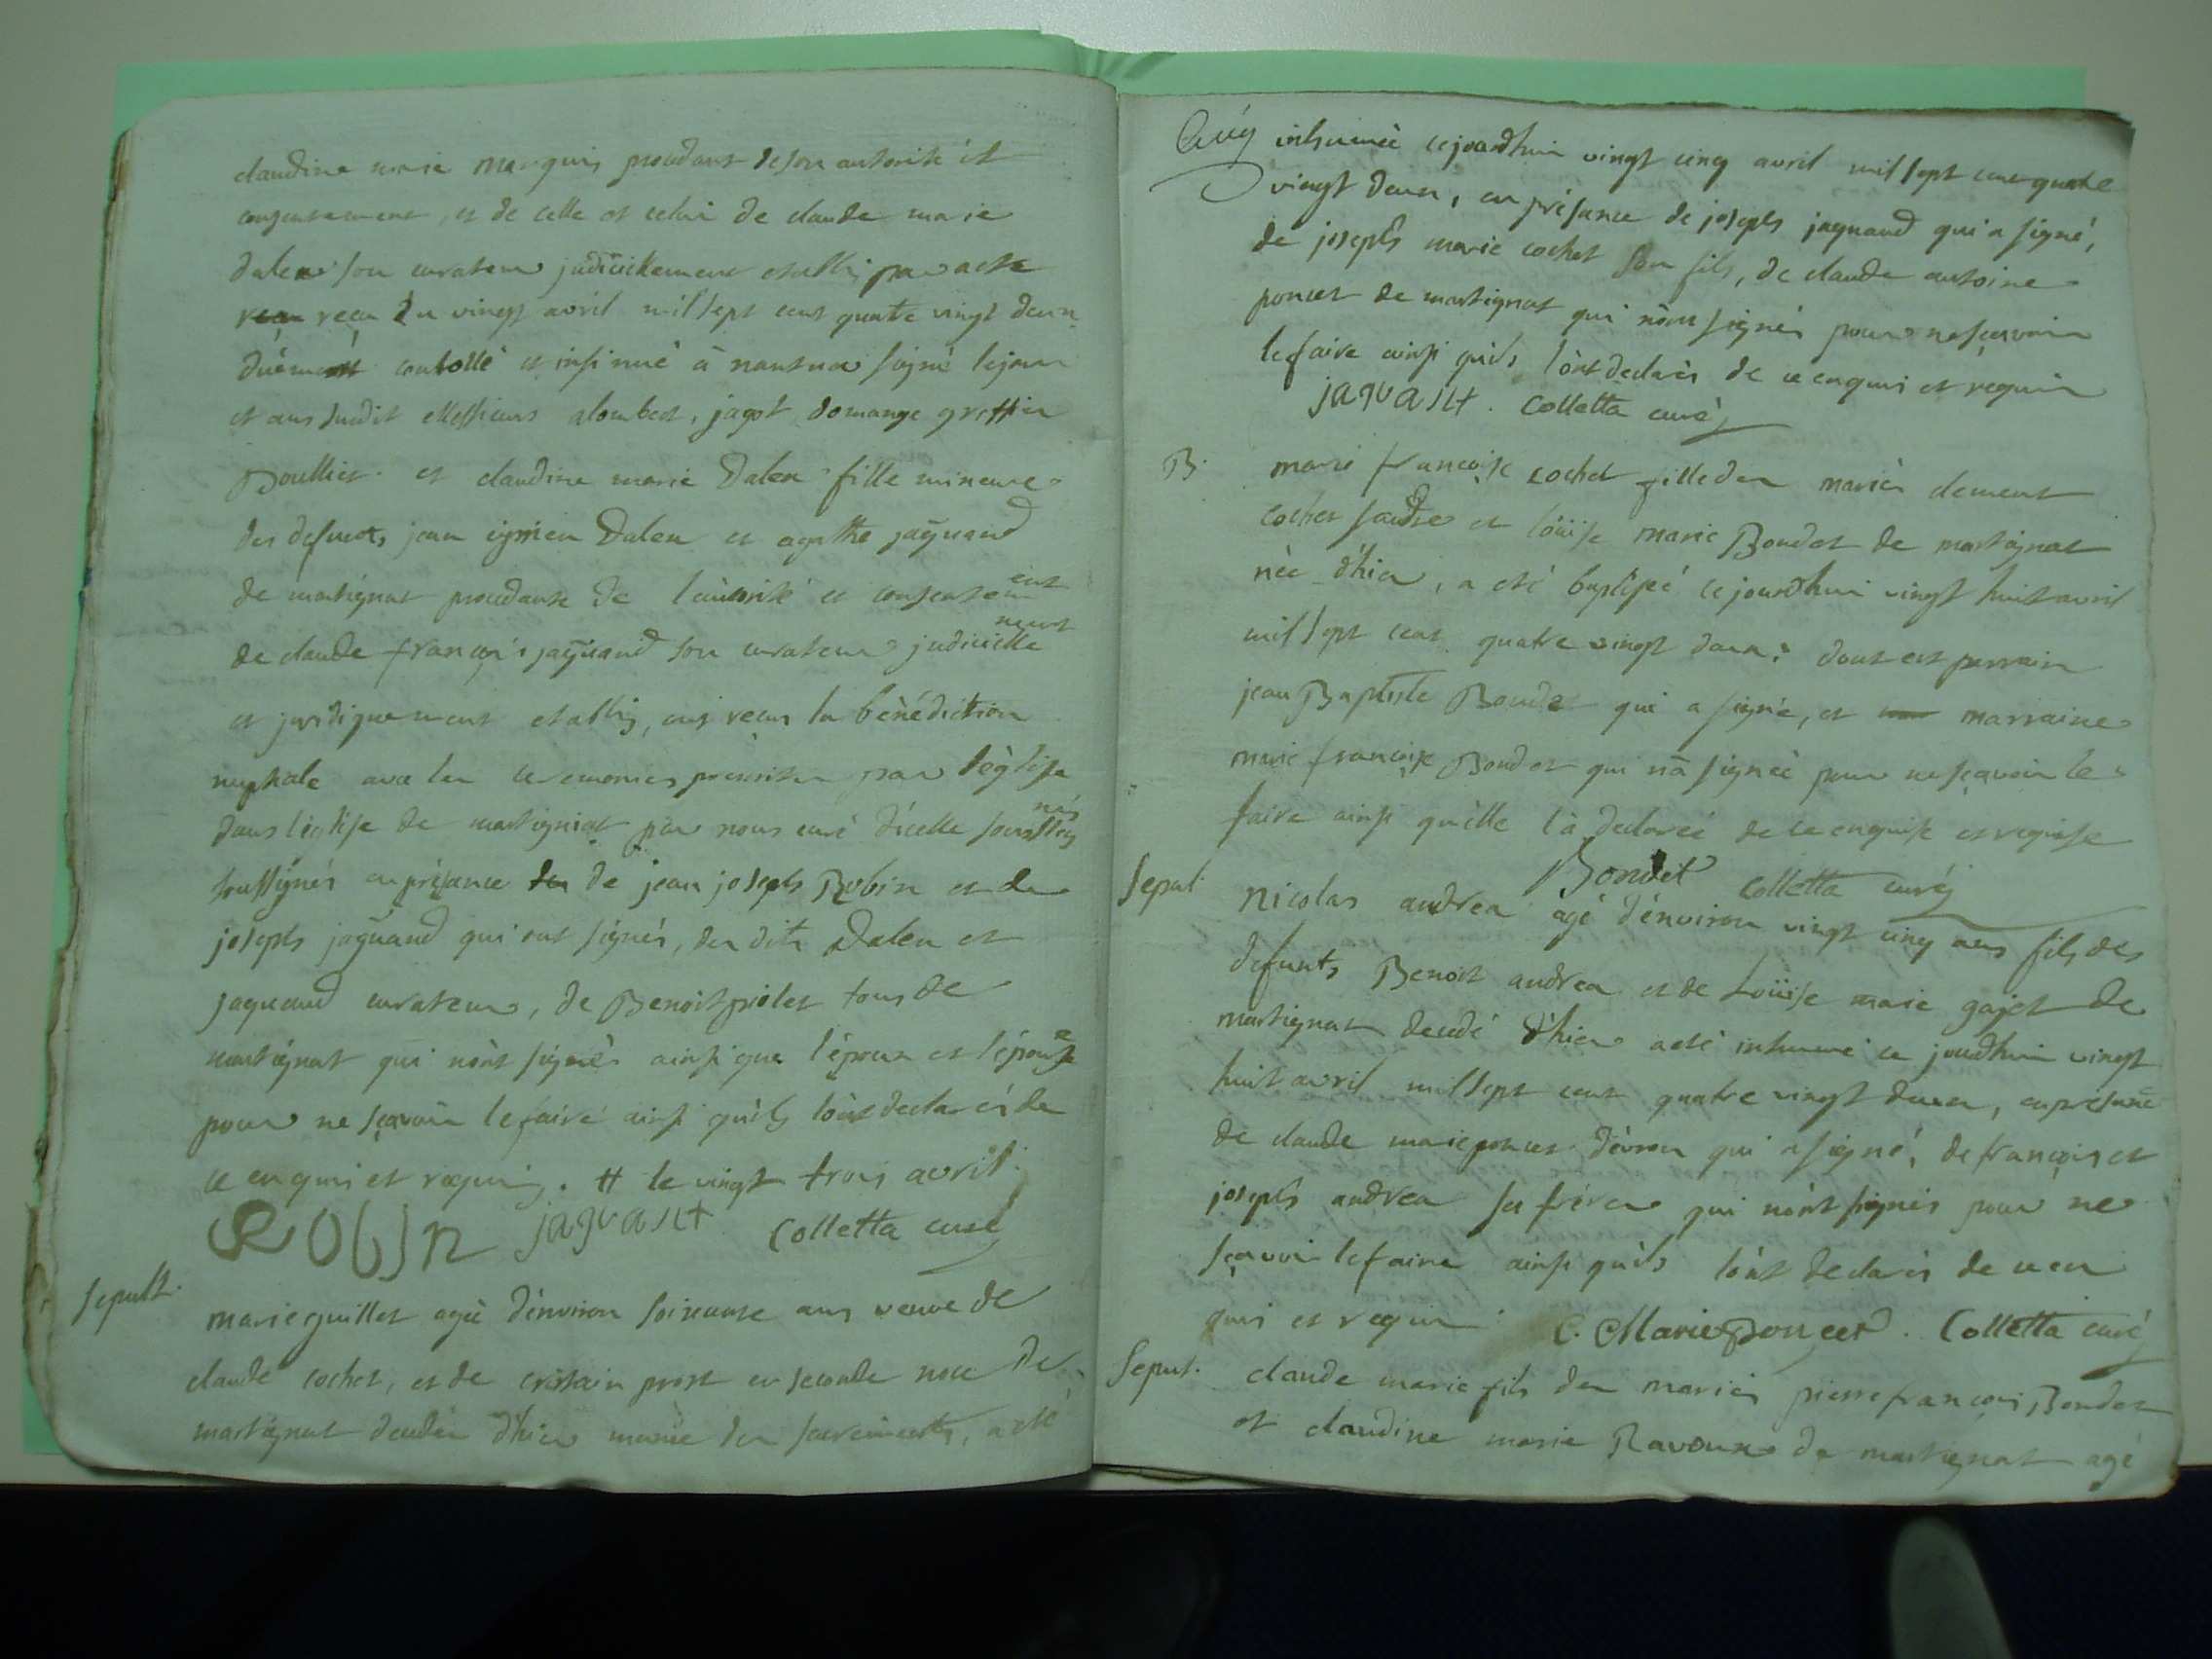 claudine marie marquis procedant de son autorité et
consentement, et de celle et celui de claude marie
dalea son curateur judiciellement establi par acte
recu recu du vingt avril mil sept cent quatre vingt deux
duément controllé et insinué à nantua signé lejeur
et aus susdit Messieurs alombert, jagot domange greffier
Doullier et claudine marie Dalea fille mineure
des defunts, jean Dalea et agathe jaquand
de martignat procedante de l'autorité et consentement
de claude françois jaquand son curateur judiciellement
et juridiquement establis, ont recus la bénédiction
nuptiale avec les ceremonies prescrites par l'église
dans l'église de martigniat par nous curé d'icelle
soussignés en présence des de jean joseph Robin et de
joseph jaquand qui ont signés, des dits Dalea et
jaquand curateurs, de Benoit piolet tous de
martignat qui n'ont signés ainsi que l'époux et l'épouse
pour ne sçavoir le faire ainsi qu'ils l'ont declarés de
ce enquis et requis. # le vingt trois avril.
Robin jaquant colletta curé
sepult.
marie guillet agée d'environ soixante ans veuve de
claude cochet, et de cristain prost en seconde noce de
martignat decedée d'hier munie des sacrements, a esté
inhumée cejourdhui vingt cinq avril mil sept cent quatre
vingt deux, en présence de joseph jaquand qui a signé,
de joseph marie cochet son fils, de claude antoine
poncet de martignat qui n'ont signés pour ne sçavoir
le faire ainsi qu'ils l'ont declarés de ce enquis et requis
jaquant. colletta curé
B. marie françoise cochet fille des mariés clement
cochet et loüise marie Bondet de martignat
née d'hier, a esté baptisée cejourdhui vingt huit avril
mil sept cent quatre vingt deux, dont est parrain
jean Baptiste Bondet qui a signé, et marraine
marie françoise Bondet qui n'a signée pour ne sçavoir le
faire ainsi qu'elle l'a declarée de ce enquise et requise
Bondet colletta curé
sepul. nicolas andrea agé d'environ vingt cinq ans fils des
defunts Benoit andrea et de Loüise marie gajet de
martignat decedé d'hier a esté inhumé ce jourdhui vingt
huit avril mil sept cent quatre vingt deux, en présence
de claude marie poncet d'évron qui a signé, de françois et
joseph andrea ses fréres qui n'ont signés pour ne
sçavoir le faire ainsi qu'ils l'ont declarés de ce en
quis et requis. C. Marie Poncet. Colletta curé
Sepul. claude marie fils des mariés pierre françois Bondet
et claudine marie Ravoux de martignat agé